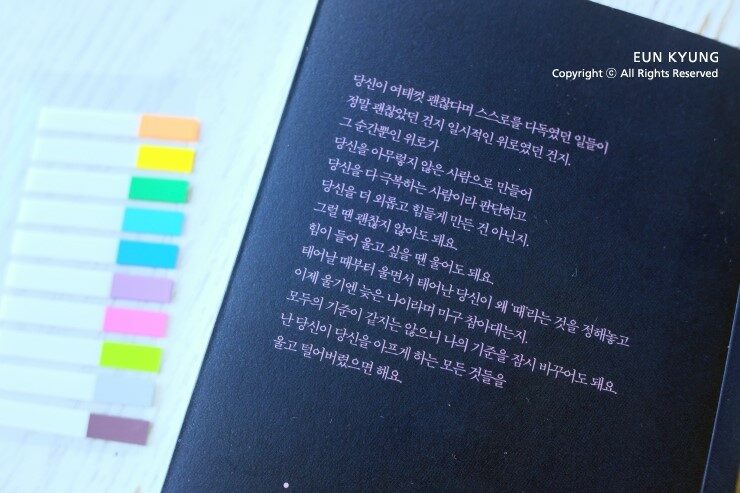 EUN KYUNG
Copyright ⓒ All Rights Reserved
당신이 여태껏 괜찮다며 스스로를 다독였던 일들이
정말 괜찮았던 건지 일시적인 위로였던 건지.
그 순간뿐인 위로가
당신을 아무렇지 않은 사람으로 만들어
당신을 다 극복하는 사람이라 판단하고
당신을 더 외롭고 힘들게 만든 건 아닌지.
그럴 땐 괜찮지 않아도 돼요.
힘이 들어 울고 싶을 땐 울어도 돼요.
태어날 때부터 울면서 태어난 당신이 왜 '때'라는 것을 정해놓고
이제 울기엔 늦은 나이라며 마구 참아대는지.
모두의 기준이 같지는 않으니 나의 기준을 잠시 바꾸어도 돼요.
난 당신이 당신을 아프게 하는 모든 것들을
울고 털어버렸으면 해요.